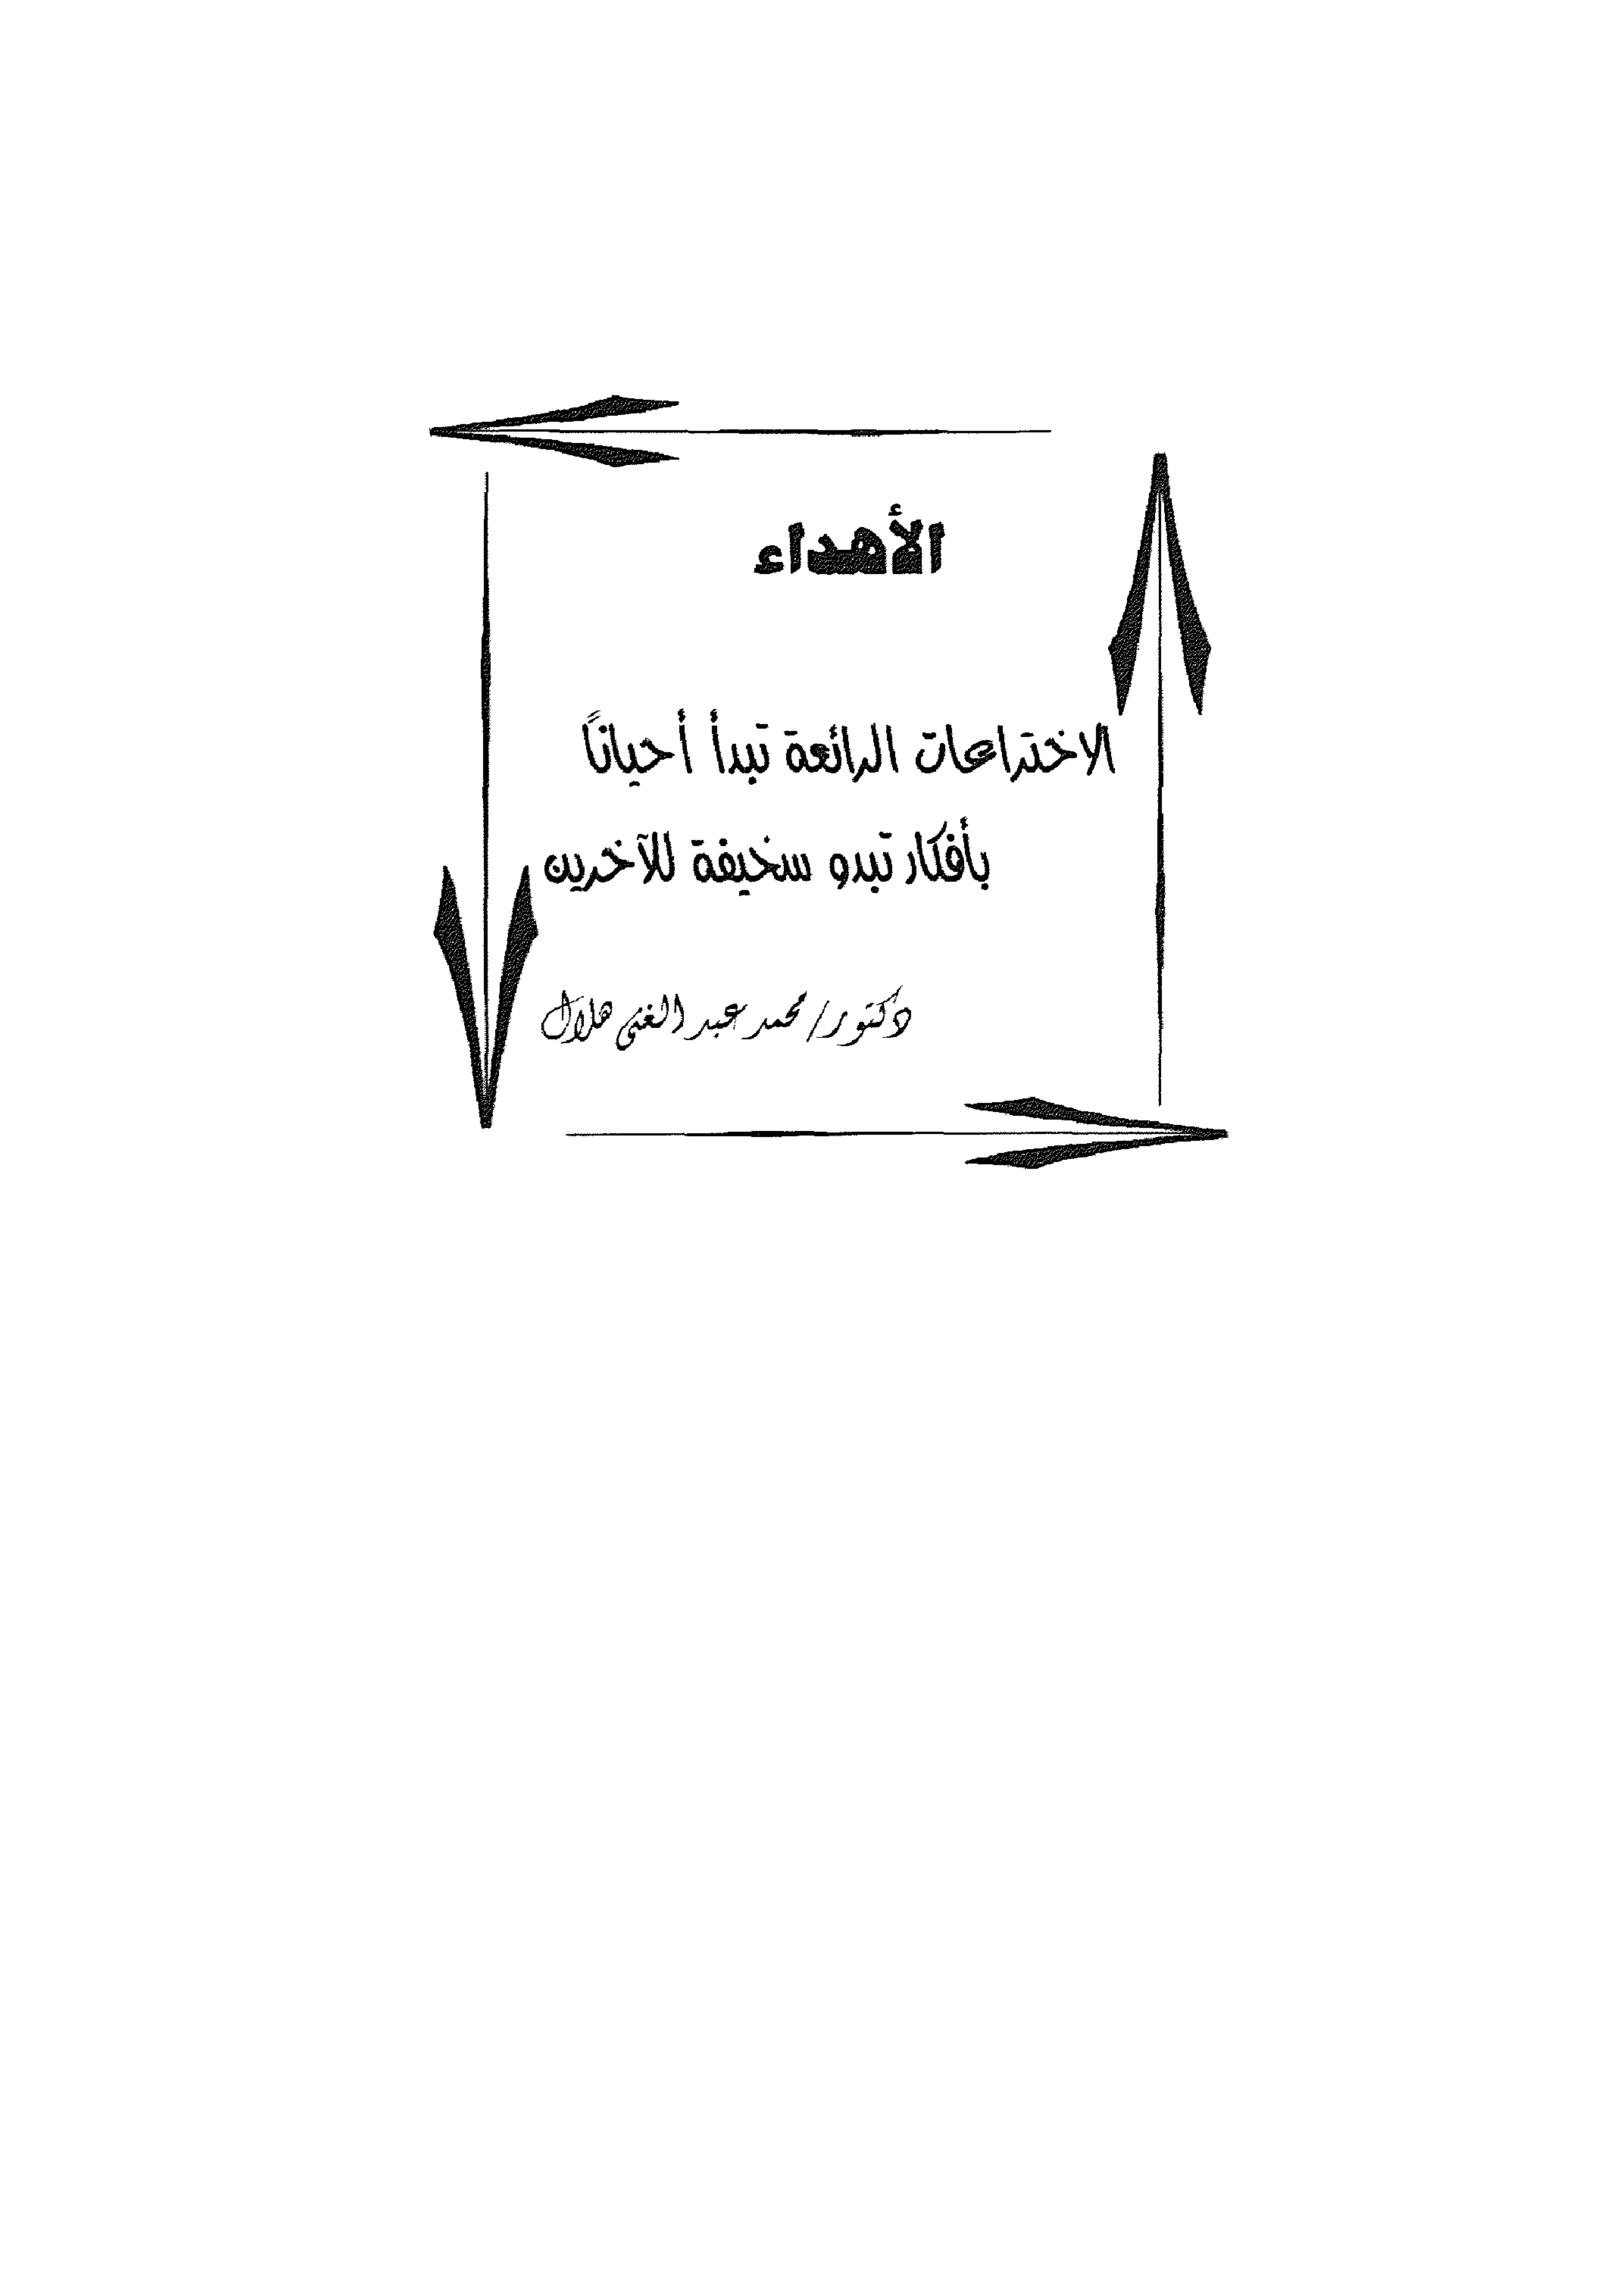 الأهداء
الاختراعات الرائعة تبدأ أحياناً
بأفكار تبدو سخيفة للآخرين
دكتور/ محمد عبد الغنى هلال